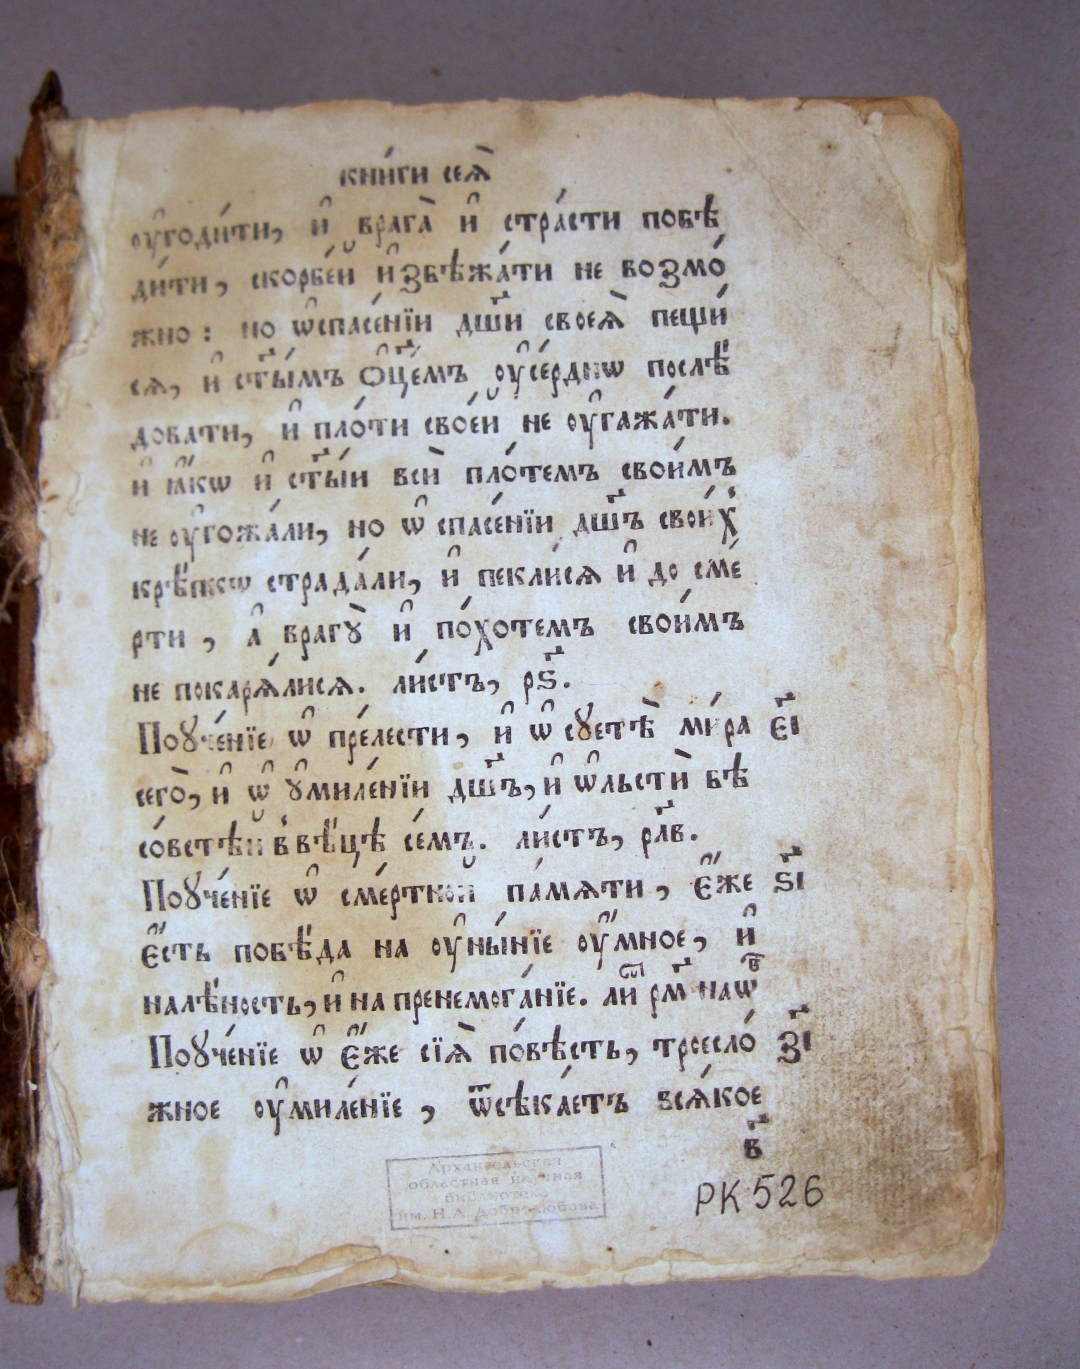 кни́ги сея̀
ᲂу҆годи́ти, и҆ врага̀ и҆ стра́сти побѣ
ди́ти, скорбе́й и҆збѣжа́ти не возмо́
жно: но ѡ҆спасе́нїи дш҃и своея̀ пещи́
ся, и҆ ст҃ы́мъ ѻ҆ц҃е́мъ ᲂу҆се́рднѡ послѣ́
довати, и҆ пло́ти свое́й не ᲂу҆гажа́ти.
и҆ ꙗ҆́кѡ и҆ ст҃ы́и всѝ пло́темъ свои́мъ
не ᲂу҆гожа́ли, но ѡ҆ спасе́нїи дш҃ъ свои́х
крѣ́пкѡ страда́ли, и҆ пекли́ся и҆ до сме́
рти, а҆ врагꙋ̀ и҆ по́хотемъ свои́мъ
не покаря́лися. ли́стъ, рѕ҃.
Поꙋче́нїе ѡ҆ пре́лести, и҆ ѡ҆ сꙋетѣ̀ ми́ра є҃і
сего̀, и҆ ѡ҆ ꙋ҆миле́нїи дш҃ъ, и҆ ѡ҆льстѝ бѣ
со́встѣй в вѣ́цѣ се́мъ. ли́стъ, рл҃в.
Поꙋче́нїе ѡ҆ сме́ртной па́мѧти, є҆́же ѕ҃і
є҆́сть побѣ́да на ᲂу҆ны́нїе ᲂу҆́мное, и҆
налѣ́ность, и҆ на пренемога́нїе. лиⷭ҇ рм҃ наѡⷡ҇
Поꙋче́нїе ѡ҆ є҆́же сїѧ̀ по́вѣсть, троесло́ з҃і
жное ᲂу҆миле́нїе, ѿсѣка́етъ вся́кое
в҃
Архангельская
областная научная
библиотека
им. Н.А. Добролюбова
РК 526